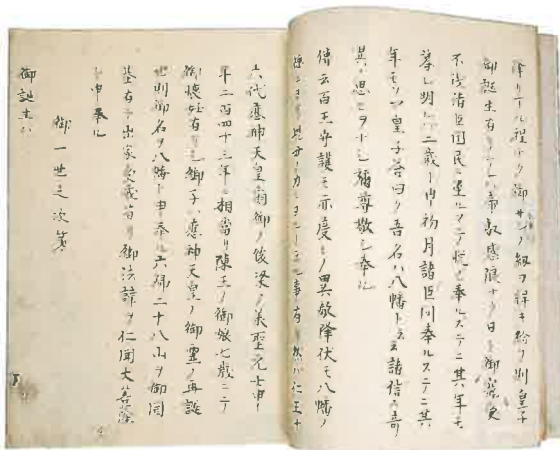 降リ玉ル程ナク御サンノ紐ヲ解キ給フ則皇子
御誕生有リテハ帝叡感限ナク日ヲ御
不浅諸臣国民ニ至ルマテ悦ヒ奉ルステニ其年モ
暮レ明レハ二歳ノ内初月諸臣問奉ルステニ其
年モソツ皇子答曰ク吾名ハ八幡ト云云諸信ニ奇
異ノ思ヲナシ彌尊敬シ奉ル
傳云百王守護モ亦度々ノ異敵降伏モ八幡ノ
事有 仁王十
六代應神天皇 御 後梁ノ義聖元士申ノ
年二百四十三年ニ相當リ陳王ノ御娘七歳ニテ
御懐妊有リシ御子ハ應神天皇ノ御霊ノ再誕
也則御名ヲ八幡ト申奉ル六郷二十八山ヲ御開
基有テ出家 有リ御法諱ヲ仁聞大菩薩
ト申奉ル
御一世之次第
御誕生ハ